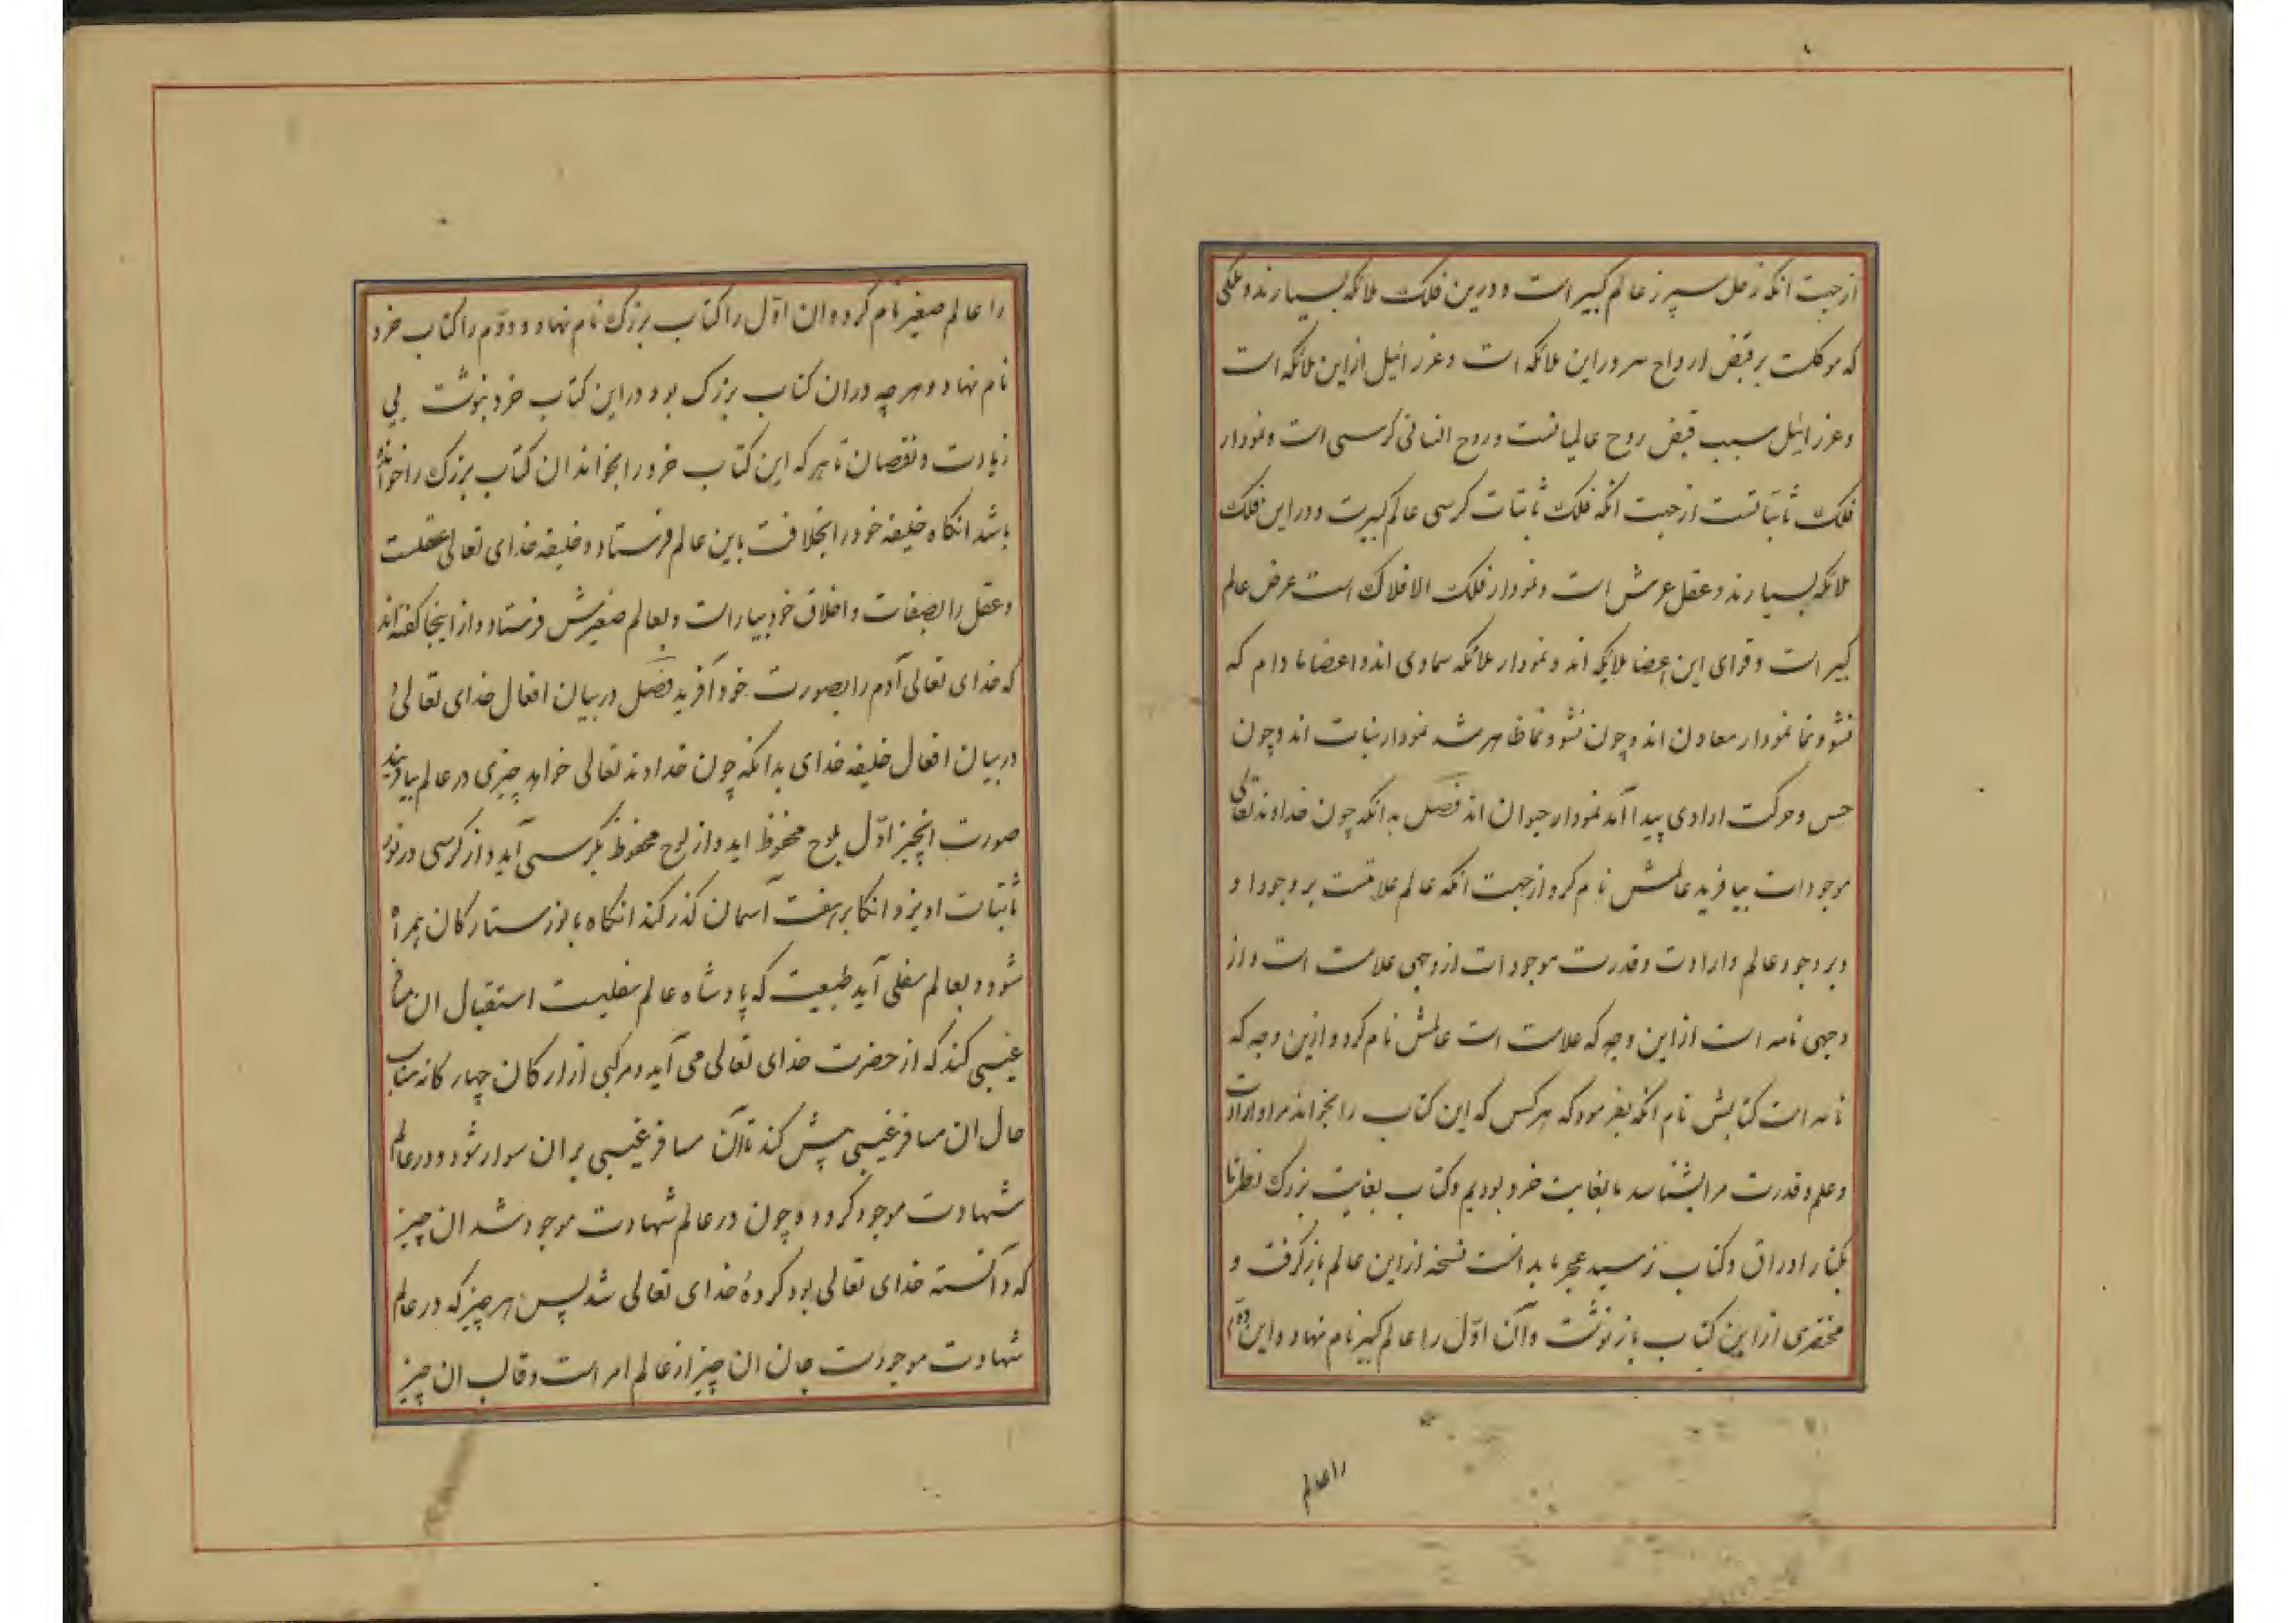 ازجهت انکه زحل سپرز عالم کبیر است و درین فلک ملائکه بسیارند و ملکی
که موکلست بر قبض ارواح سرور این ملائکه است و عزرائیل ازاین ملائکه است
و عزرائیل سبب قبض روح عالمیانست و روح انسانی کرسی است و نمودار
فلک ثابتاتست ازجهت انکه فلک ثابتات کرسی عالم کبیرست و دراین فلک
ملائکه بسیارند و عقل عرش است و نمودار فلک الافلاک است عرض عالم
کبیر است و قوای این اعضا ملایکه اند و نمودار ملائکه سماوی اند و اعضا مادام که
نشو و نما نمودار معادن اند و چون نشو و نما ظاهر شد نمودار نبات اند و چون
حس و حرکت ارادی پیدا آمد نمودار حیوان اند فصل بدانکه چون خداوند تعالی
موجودات بیافرید عالمش نام کرد ازجهت انکه عالم علامتست بر وجود او
و بر وجود عالم و ارادت و قدرت موجودات از وجهی علامت است و از
وجهی نامه است ازاین وجه که علامت است عالمش نام کرد و ازین وجه که
نامه است کتابش نام انکه بفرمود که هرکس که این کتاب را بخواند مرا و ارادت
و علم و قدرت مرا بشناسد ما بغایت خرد بودیم و کتاب بغایت بزرک نظر ما
بکنار اوراق و کتاب نرسید عجز ما بدانست نسخه ازاین عالم بازکرفت و
مختصری ازاین کتاب باز نوشت و آن اوّل را عالم کبیر نام نهاد و این دوّم
را عالم
را عالم صغیر نام کرد و ان اوّل را کتاب بزرک نام نهاد و دوّم را کتاب خرد
نام نهاد و هرچه دران کتاب بزرک بود دراین کتاب خرد بنوشت بی
زیادت و نقصان تا هرکه این کتاب خرد را بخواند ان کتاب بزرک را خوانده
باشد انکاه خلیفه خود را بخلافت باین عالم فرستاد و خلیفه خدای تعالی عقلست
و عقل را بصفات و اخلاق خود بیاراست و بعالم صغیرش فرستاد و از اینجا کفته اند
که خدای تعالی آدم را بصورت خود آفرید فصل دربیان افعال خدای تعالی و
دربیان افعال خلیفه خدای بدانکه چون خداوند تعالی خواهد چیزی در عالم بیافریند
صورت انچیز اوّل بلوح محفوظ آید و از لوح محفوظ بکرسی آید و از کرسی در نور
ثابتات اویزد و انکا بر هفت آسمان کذر کند انکاه با نور ستارکان همراه
شود و بعالم سفلی آید طبیعت که پادشاه عالم سفلیست استقبال ان مسافر
غیبی کند که از حضرت خدای تعالی می آید و مرکبی از ارکان چهارکانه مناسب
حال ان مسافر غیبی پیش کند تا آن مسافر غیبی بر ان سوار شود و در عالم
شهادت موجود کردد و چون در عالم شهادت موجود شد ان چیز
که دانسته خدای تعالی بود کردهٔ خدای تعالی شد پس هر چیز که در عالم
شهادت موجودست جان ان چیز از عالم امر است و قالب ان چیز